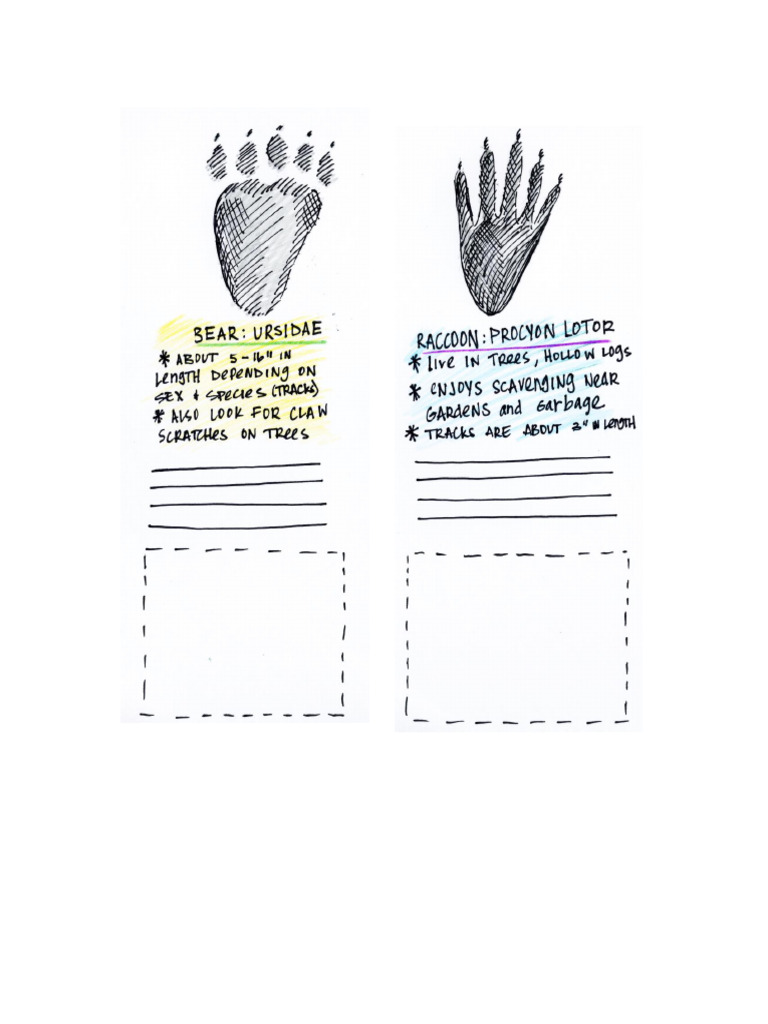 BEAR: URSIDAE
* ABOUT 5-16" IN
LENGTH DEPENDING ON
SEX & SPECIES (TRACKS)
* ALSO LOOK FOR CLAW
SCRATCHES ON TREES
RACCOON: PROCYON LOTOR
* LIVE IN TREES, HOLLOW LOGS
* ENJOYS SCAVENGING NEAR
GARDENS and GARBAGE
* TRACKS ARE ABOUT 3" IN LENGTH